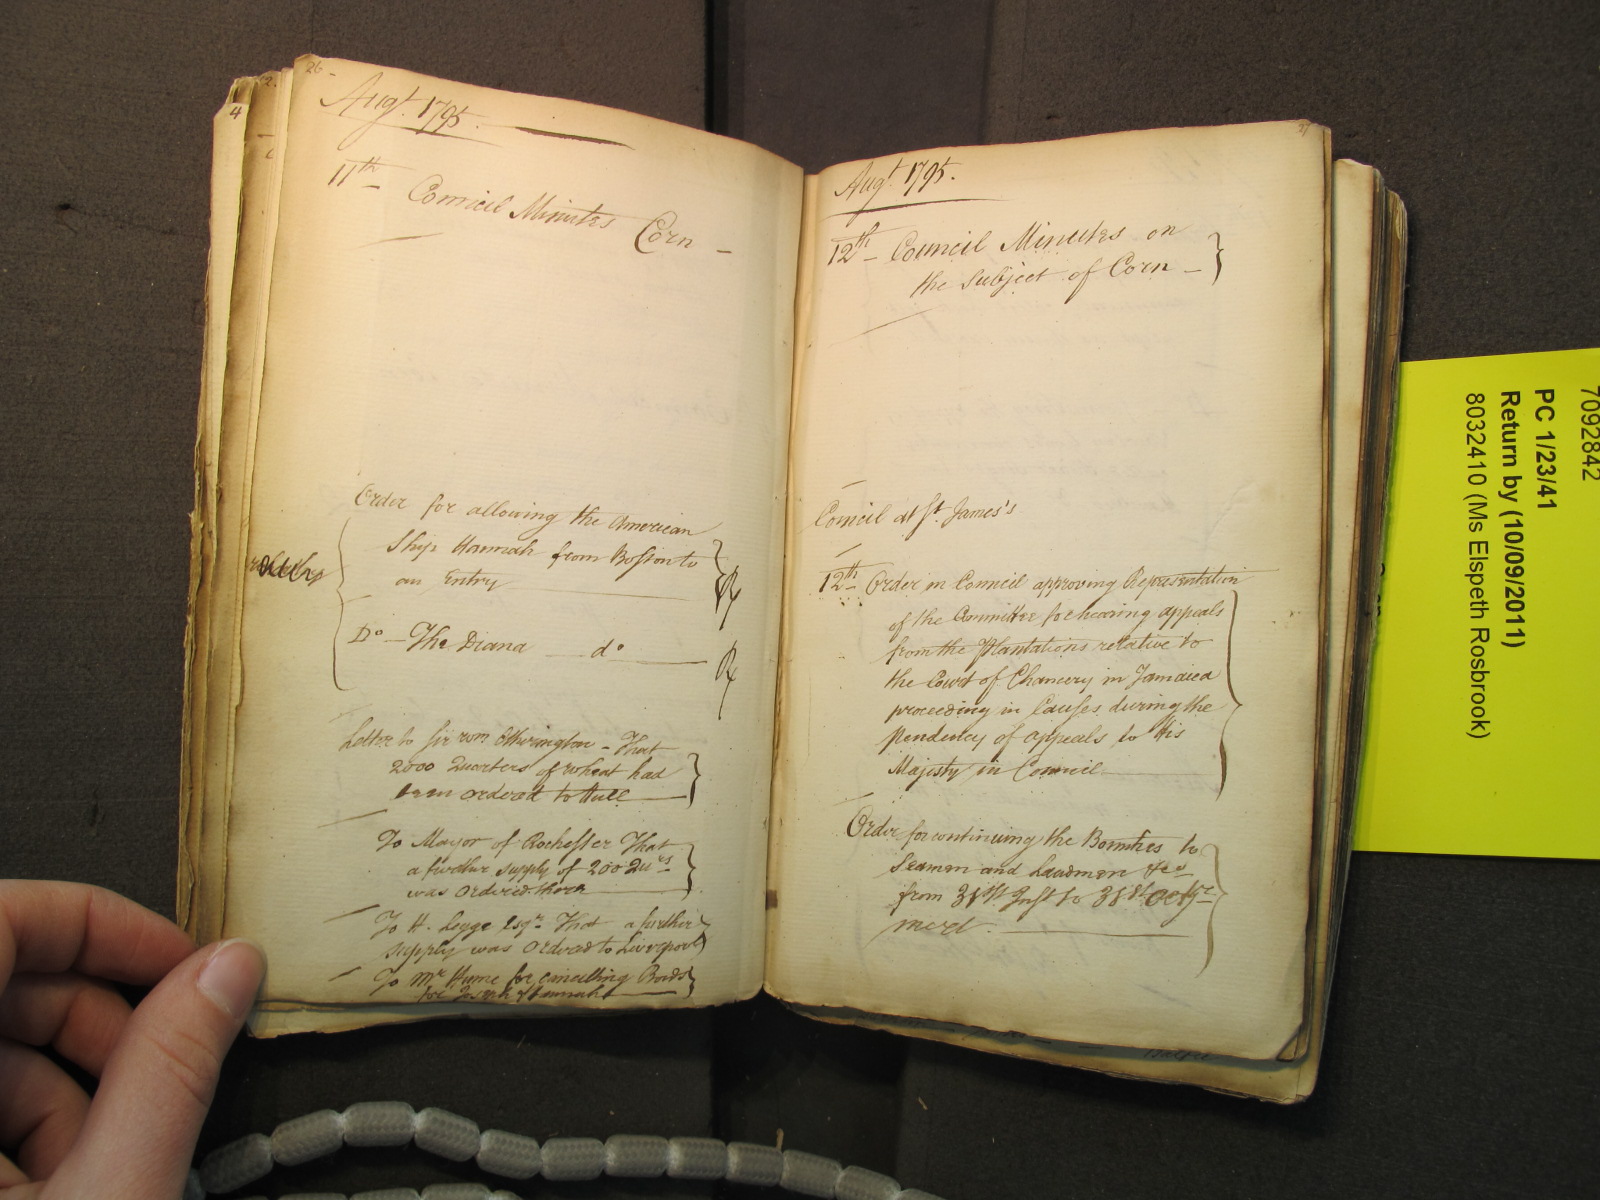 4
2.
26-
Augt. 1795.
11th
Council Minutes Corn
Order for allowing the American
Ship Hannah from Boston to
an Entry
Do The Diana do
Letter to Sir Wm Etherington - That
2000 Quarters of Wheat had
been ordered to Hull
To Mayor of Rochester That
a further supply of 200 Qurs
was ordered there
To H. Legge Esqr. That a further
supply was Ordered to Liverpool
To Mr Hume for cancelling Bonds
for Joseph & Hannah
27
Augt. 1795.
12th Council Minutes on
the Subject of Corn
Council at St. James's
12th Order in Council approving Representation
of the Committee for hearing appeals
from the Plantations relative to
the Court of Chancery in Jamaica
proceeding in Causes during the
Pendency of appeals to His
Majesty in Council
Order for continuing the Bounties to
Seamen and Landmen &ca
from 31st Inst to 31st
next
7092842
PC 1/23/41
Return by (10/09/2011)
8032410 (Ms Elspeth Rosbrook)